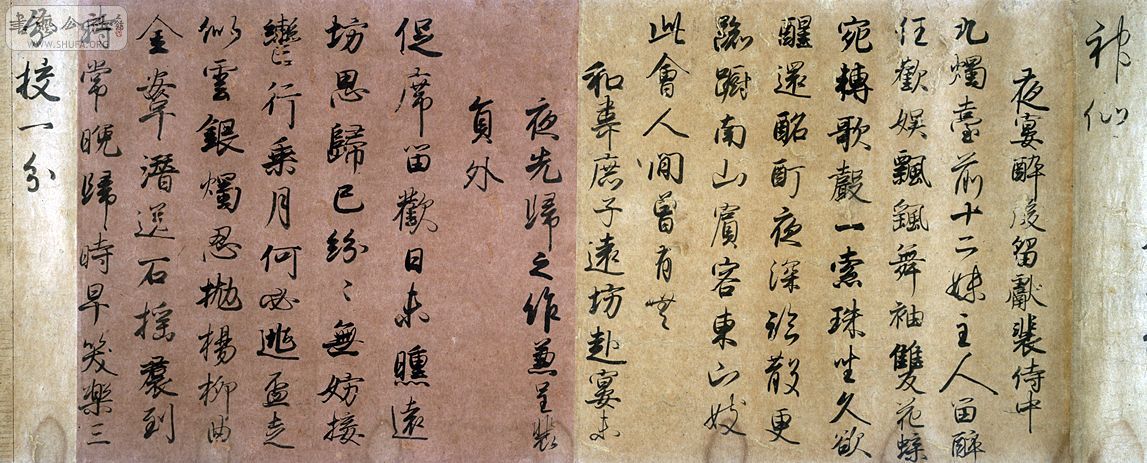 神仙
夜宴醉後留獻裴侍中
九燭臺前十二姝主人留醉
任歡娛飄颻舞袖雙飛蝶
宛轉歌聲一索珠坐久欲
醒還酩酊夜深臨散更
踟躕南山賓客東山妓
此會人間曾有無
和韋庶子遠坊赴宴未
夜先歸之作兼呈裴
員外
促席留歡日未曛遠
坊思歸已紛〻無妨按
轡行乘月何必逃盃走
似雲銀燭忍抛楊柳曲
金鞍潛送石榴裙到
時常晚歸時早笑樂三
分校一分
WWW.SHUFA.ORG